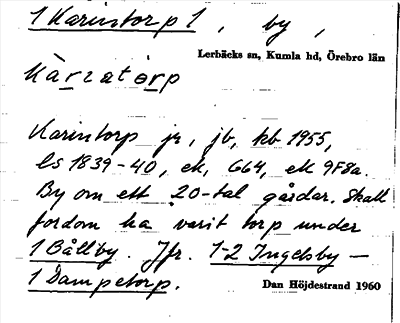 1 Karintorp 1, by,
Lerbäcks sn, Kumla hd, Örebro län
Kàrzatòrp
Karintorp jr, jb, kb 1955,
ls 1839-40, ek, G64, ek 9F8a.
By om ett 20-tal gårdar. Skall
fordom ha varit torp under
1 Bållby. Jfr. 1-2 Ingelsby –
1 Dampetorp.
Dan Höjdestrand 1960